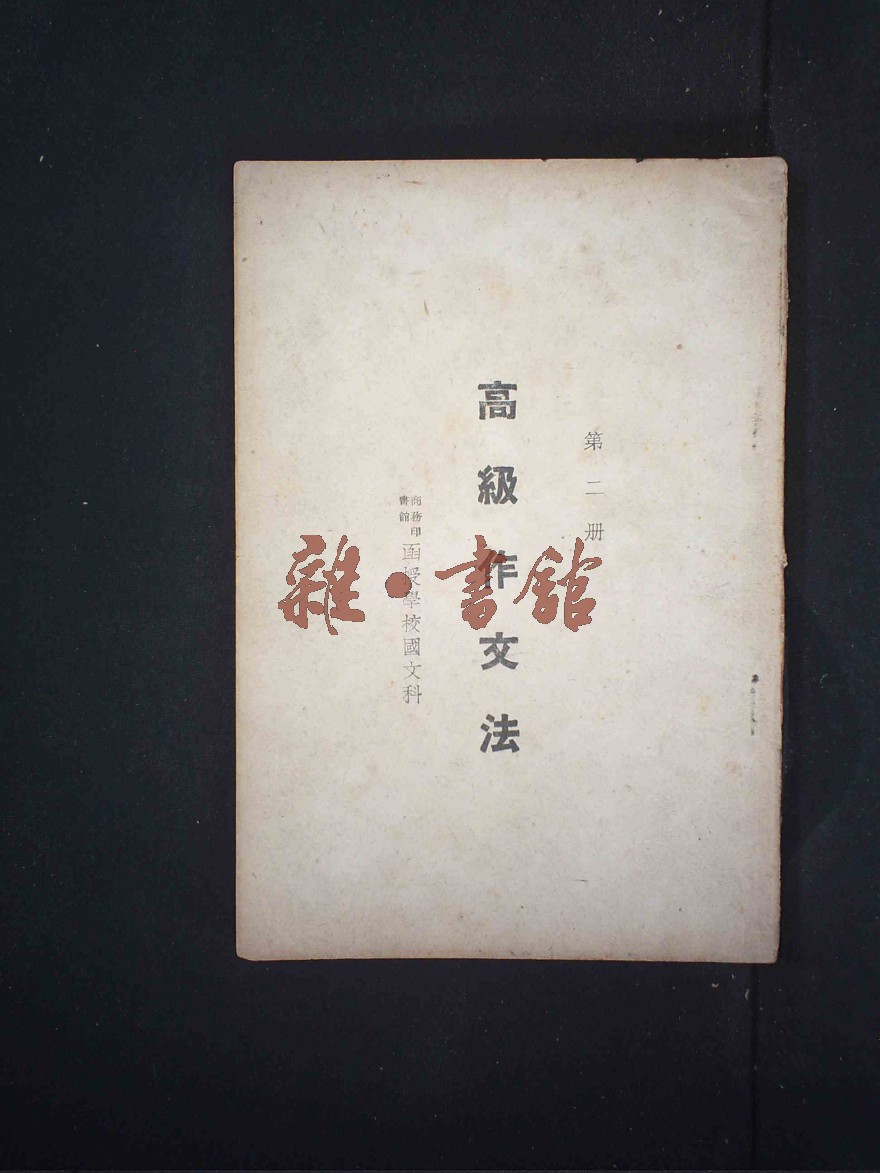 第二册
高級作文法
商務印書館
函授學校國文科
雜·書館